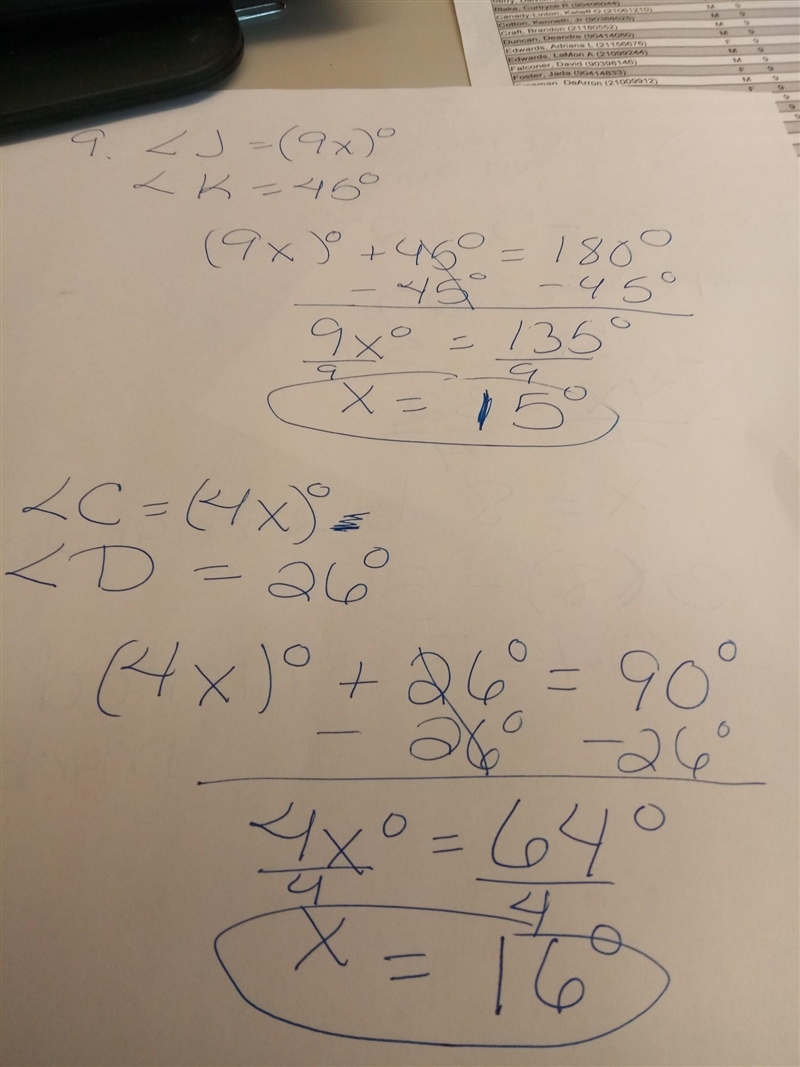 Blake, Cortlyne R (90406044) M 9
Canady Linton, Kalieff D (21061219) M 9
Cotton, Kenneth, Jr (90386525) M 9
Craft, Brandon (21180552) M 9
Duncan, Deandre (90414060) M 9
Edwards, Adriana L (21156676) F 9
Edwards, LaMon A (21099244) M 9
Falconer, David (90396146) M 9
Foster, Jada (90414833) F 9
DeArron (21009912) M 9
F 9
9
9
9
9. <J = (9x)°
<K = 45°
(9x)° + 45° = 180°
- 45° - 45°
9x° = 135°
9 9
x = 15°
<C = (4x)°
<D = 26°
(4x)° + 26° = 90°
- 26° - 26°
4x° = 64°
4 4
x = 16°